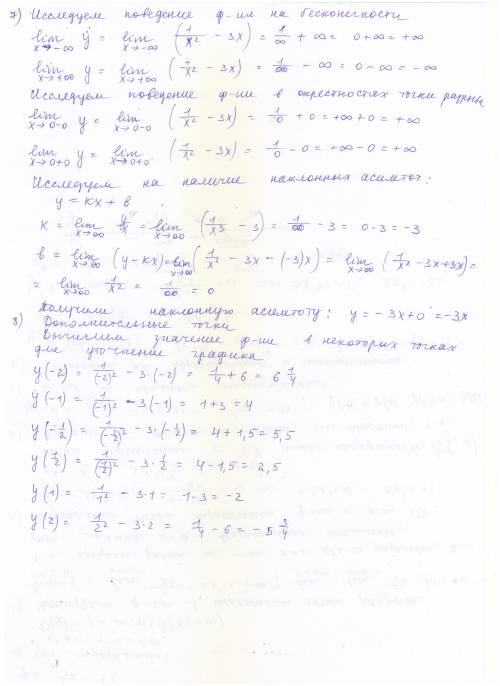 7) Исследуем поведение ф-ии на бесконечности
lim x→-∞ y = lim x→-∞ (1/x² - 3x) = 1/∞ + ∞ = 0+∞ = +∞
lim x→+∞ y = lim x→+∞ (1/x² - 3x) = 1/∞ - ∞ = 0-∞ = -∞
Исследуем поведение ф-ии в окрестностях точки разрыва
lim x→0-0 y = lim x→0-0 (1/x² - 3x) = 1/0 + 0 = +∞+0 = +∞
lim x→0+0 y = lim x→0+0 (1/x² - 3x) = 1/0 - 0 = +∞-0 = +∞
Исследуем на наличие наклонных асимптот:
y = kx + b
k = lim x→∞ y/x = lim x→∞ (1/x³ - 3) = 1/∞ - 3 = 0-3 = -3
b = lim x→∞ (y-kx) = lim x→∞ (1/x² - 3x - (-3)x) = lim x→∞ (1/x² - 3x+3x) =
= lim x→∞ 1/x² = 1/∞ = 0
Получили наклонную асимптоту: y = -3x+0 = -3x
8) Дополнительные точки
Вычислем значение ф-ии в некоторых точках
для уточнение графика
y(-2) = 1/(-2)² - 3·(-2) = 1/4 + 6 = 6 1/4
y(-1) = 1/(-1)² - 3(-1) = 1+3 = 4
y(-1/2) = 1/(-1/2)² - 3·(-1/2) = 4+1,5 = 5,5
y(1/2) = 1/(1/2)² - 3·1/2 = 4-1,5 = 2,5
y(1) = 1/1² - 3·1 = 1-3 = -2
y(2) = 1/2² - 3·2 = 1/4 - 6 = -5 3/4